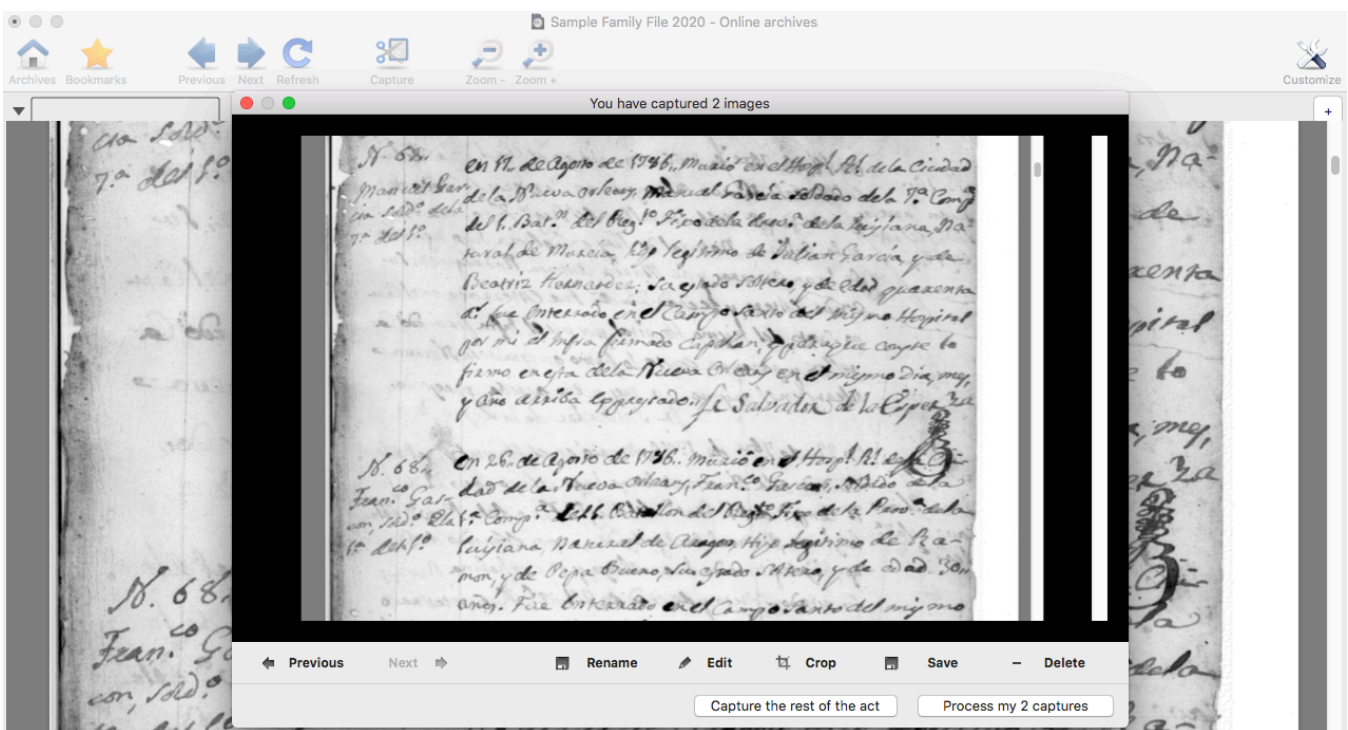 Sample Family File 2020 - Online archives
Archives Bookmarks Previous Next Refresh Capture Zoom - Zoom + Customize
You have captured 2 images
+
cia Sold.º
7.ª del 1.º
N. 68.
Fran.co Ga
con, Sold.º
N. 67.
Manuel Gar-
cia Sold.º dela
7.ª del 1.º
en 17. de Agosto de 1786. Murió en el Hosp.l Rl. dela Ciudad
dela Nueva orleans, Manuel Garcia soldado dela 7.ª Comp.ª
del 1. Bat.n del Reg.to Fixo dela dela Luisiana, Na-
tural de Murcia, hijo legitimo de Julian Garcia, y de
Beatriz Hernandez; Su estado soltero, y de edad quarenta
a.s fue Enterrado en el Campo santo del mismo Hospital
por mi el Infra firmado Capellan, y para que conste lo
firmo en esta dela Nueva Orleans en el mismo Dia, mes,
y año arriba expresado. Salvador de la Esper.za
N. 68.
Fran.co Gar-
con, Sold.º
1.ª del 1.º
en 26. de Agosto de 1786. murió en el Hosp.l Rl. dela Ciu-
dad de la Nueva orleans, Fran.co Garcon, soldado dela
1.ª Comp.ª del 1. Batallon del Reg.to Fixo de la Prov.ª dela
Luisiana, Natural de Aragon, Hijo legitimo de Ra-
mon, y de Pepa Bueno, su estado soltero, y de edad 30.
años. Fue Enterrado en el Campo santo del mismo
Na-
de
quarenta
pital
lo
, mes,
za
Ciu-
la
dela
Previous Next Rename Edit Crop Save Delete
Capture the rest of the act Process my 2 captures